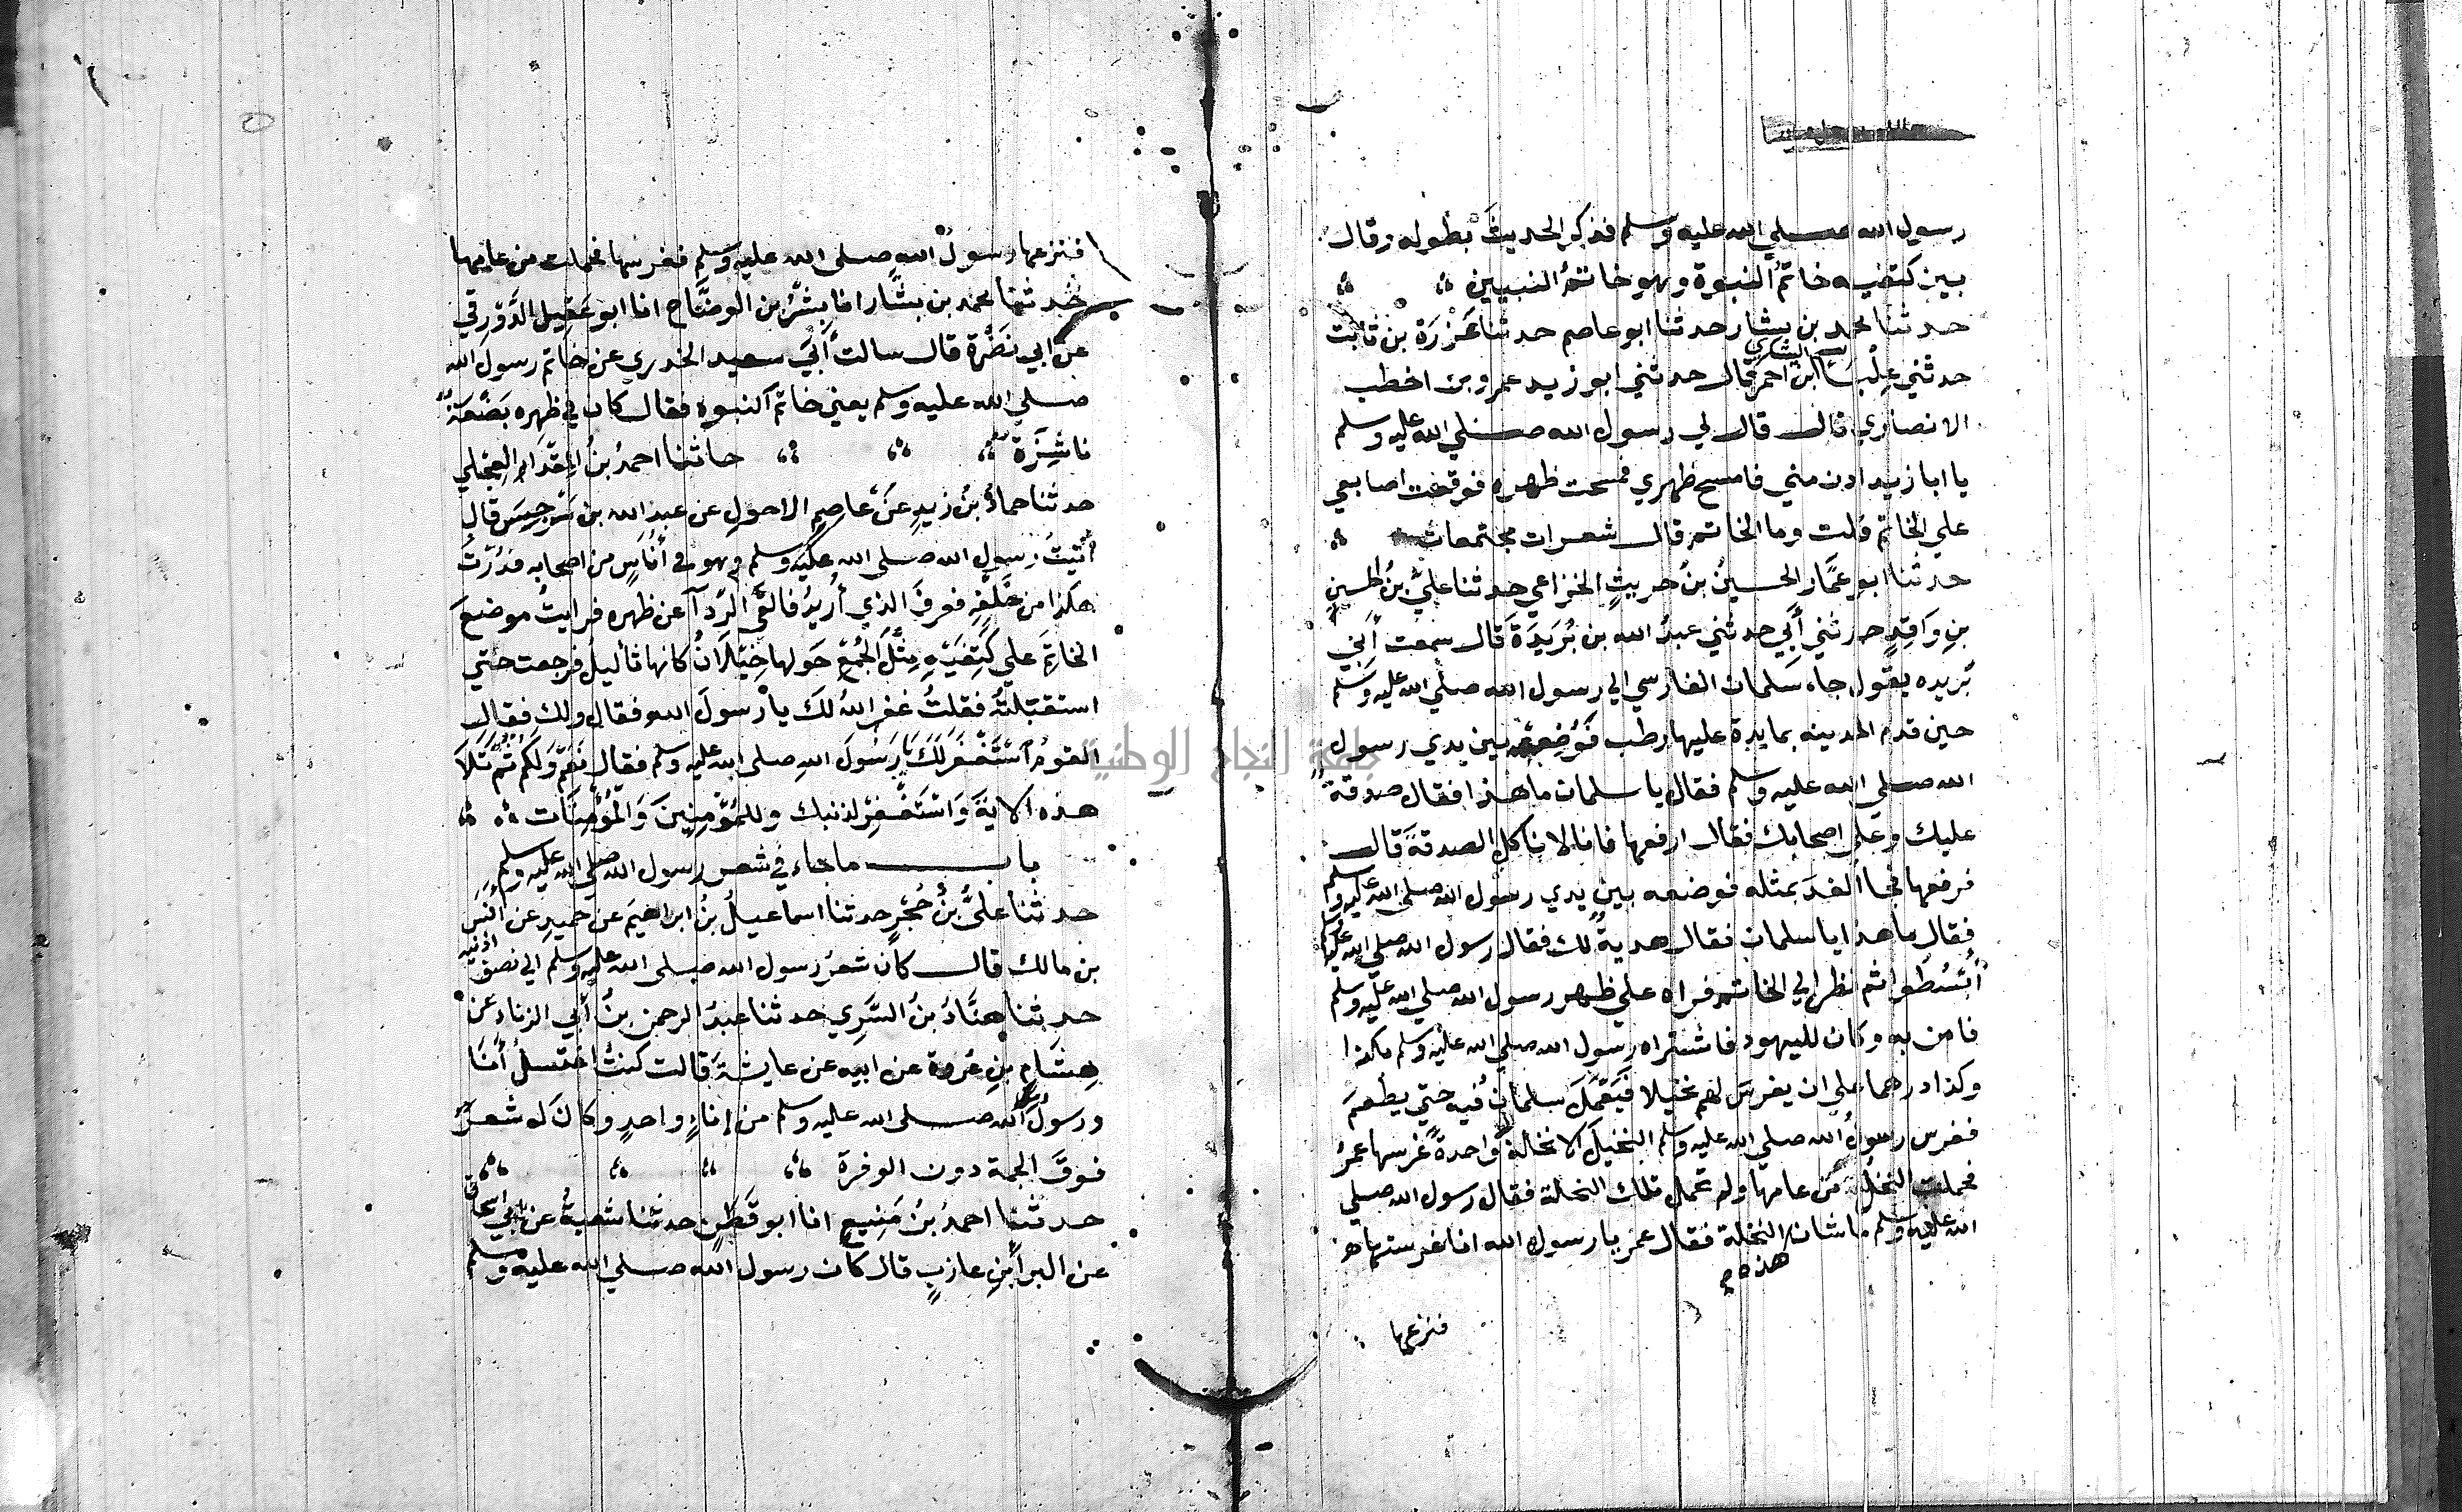 رسول الله صلي الله عليه وسلم فذكر الحديثَ بطوله وقال
بين كتفيه خاتمُ النبوة وهو خاتمُ النبيين
حدثنا محمد بن بشار حدثنا ابو عاصم حدثنا عَزْرَة بن ثابت
حدثني عِلْباء ابن احمر اليشكري قال حدثني ابو زيد عمرو بن اخطب
الانصاري قال قال لي رسول الله صلي الله عليه وسلم
يا ابا زيد ادن مني فامسح ظهري فمسحت ظهره فوقعت اصابعي
علي الخاتم قلت وما الخاتم قال شعرات مجتمعات
حدثنا ابو عمَّار الحسينُ بنُ حريثٍ الخزاعي حدثنا عليُّ بنُ الحسينِ
بنِ وَاقِدٍ حدثني أَبِي حدثني عبدُ الله بن بُرَيْدَةَ قال سمعت أبي
بُريده يقول جاء سَلمان الفارسي الي رسول الله صلي الله عليه وسلم
حين قدم المدينه بمايدة عليها رطب فَوُضِعَتْ بين يدي رسول
الله صلي الله عليه وسلم فقال يا سلمان ما هذا فقال صدقةٌ
عليك وعلي اصحابك فقال ارفعها فانا لا ناكل الصدقةَ قال
فرفعها فجا الغدَ بمثله فوضعه بين يدي رسول الله صلي الله عليه وسلم
فقال ما هذا يا سلمان فقال هديةٌ لك فقال رسول الله صلي الله عليه وسلم
أُبْسُطُوا ثم نظر الي الخاتم فراه علي ظهر رسول الله صلي الله عليه وسلم
فامن به وكان لليهود فاشتراه رسول الله صلي الله عليه وسلم بكذا
وكذا درهما علي ان يغرسَ لهم نخيلا فَيَعْمَلَ سلمانُ فيه حتي يطعمَ
فغرس رسولُ الله صلي الله عليه وسلم النخيلَ الا نخلةً واحدةً غرسها عمرُ
فحملت النخلُ من عامها ولم تحمل تلك النخلة فقال رسول الله صلي
الله عليه وسلم ما شان هذه النخلة فقال عمر يا رسول الله انا غرستها
فنزعها
فنزعها رسولُ الله صلى الله عليه وسلم فغرسها فحملت من عامها
حدثنا محمد بن بشار انا بِشْرُ بن الوضَّاح انا ابو عَقِيل الدَّوْرِقي
عن ابي نَضْرة قال سالت أبَا سعيد الخدري عن خاتم رسول الله
صلي الله عليه وسلم يعني خاتمَ النبوه فقال كان في ظهره بَضْعَةٌ
ناشِزَة حدثنا احمدُ بنُ المِقدَامِ العِجْلي
حدثنا حمادُ بنُ زيدٍ عَنْ عاصِمٍ الاحولِ عن عبدِ الله بن سَرْجِسَ قال
أتيتُ رسول الله صلي الله عليه وسلم وهو في أُنَاسٍ من اصحابه فدُرْتُ
هكذا من خَلْفِهِ فعرفَ الذي أُريدُ فالقَى الرِّدآ عن ظهره فرايتُ موضعَ
الخاتِمَ علي كَتِفَيْهِ مِثْلَ الجُمْعِ حَولها خِيْلَانٌ كانها ثآليل فرجعت حتي
استقبَلتُه فقلتُ غفر اللهُ لكَ يا رسولَ الله فقال ولك فقال
القومُ اسْتَغْفَرَ لَكَ رَسُولُ اللهِ صلي الله عليه وسلم فقال نَعَمْ وَلكُمْ ثُمَّ تَلَا
هذه الايةَ وَاسْتَغْفِرْ لذنبك وللمُؤْمِنِينَ وَالْمُؤْمِنَات
باب ما جاء في شعر رسول الله صلي الله عليه وسلم
حدثنا عليُّ بنُ حُجْرٍ حدثنا اسماعيلُ بنُ ابراهيمَ عن حميدٍ عن أنَسِ
بن مالك قال كان شعرُ رسول الله صلى الله عليه وسلم الي نصف اذنيه
حدثنا هنَّادُ بنُ السَّرِي حدثنا عبدُ الرحمن بنُ أبي الزناد عن
هِشَامِ بنِ عُروة عن ابيه عن عايشةَ قالت كنتُ اغتسلُ أنَا
ورسولُ الله صلى الله عليه وسلم من إناءٍ واحدٍ وكانَ له شعرٌ
فوقَ الجمة دون الوفرة
حدثنا احمدُ بنُ مَنِيعٍ انا ابو قَطَنٍ حدثنا شعبةُ عن ابي اسحاق
عن البرآ بنِ عازبٍ قال كان رسول الله صلي الله عليه وسلم
جامعة النجاح الوطنية